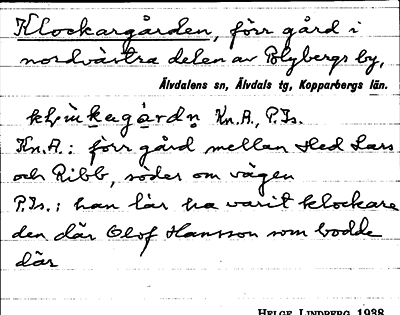 Klockargården, förr gård i
nordvästra delen av Polybergs by,
Älvdalens sn, Älvdals tg, Kopparbergs län.
Kn.A., P.Js.
Kn.A.: förr gård mellan Hed Lars
och Ribb, söder om vägen
P.Js.: han lär ha varit klockare
den där Olof Hansson som bodde
där
HELGE LINDBERG 1938